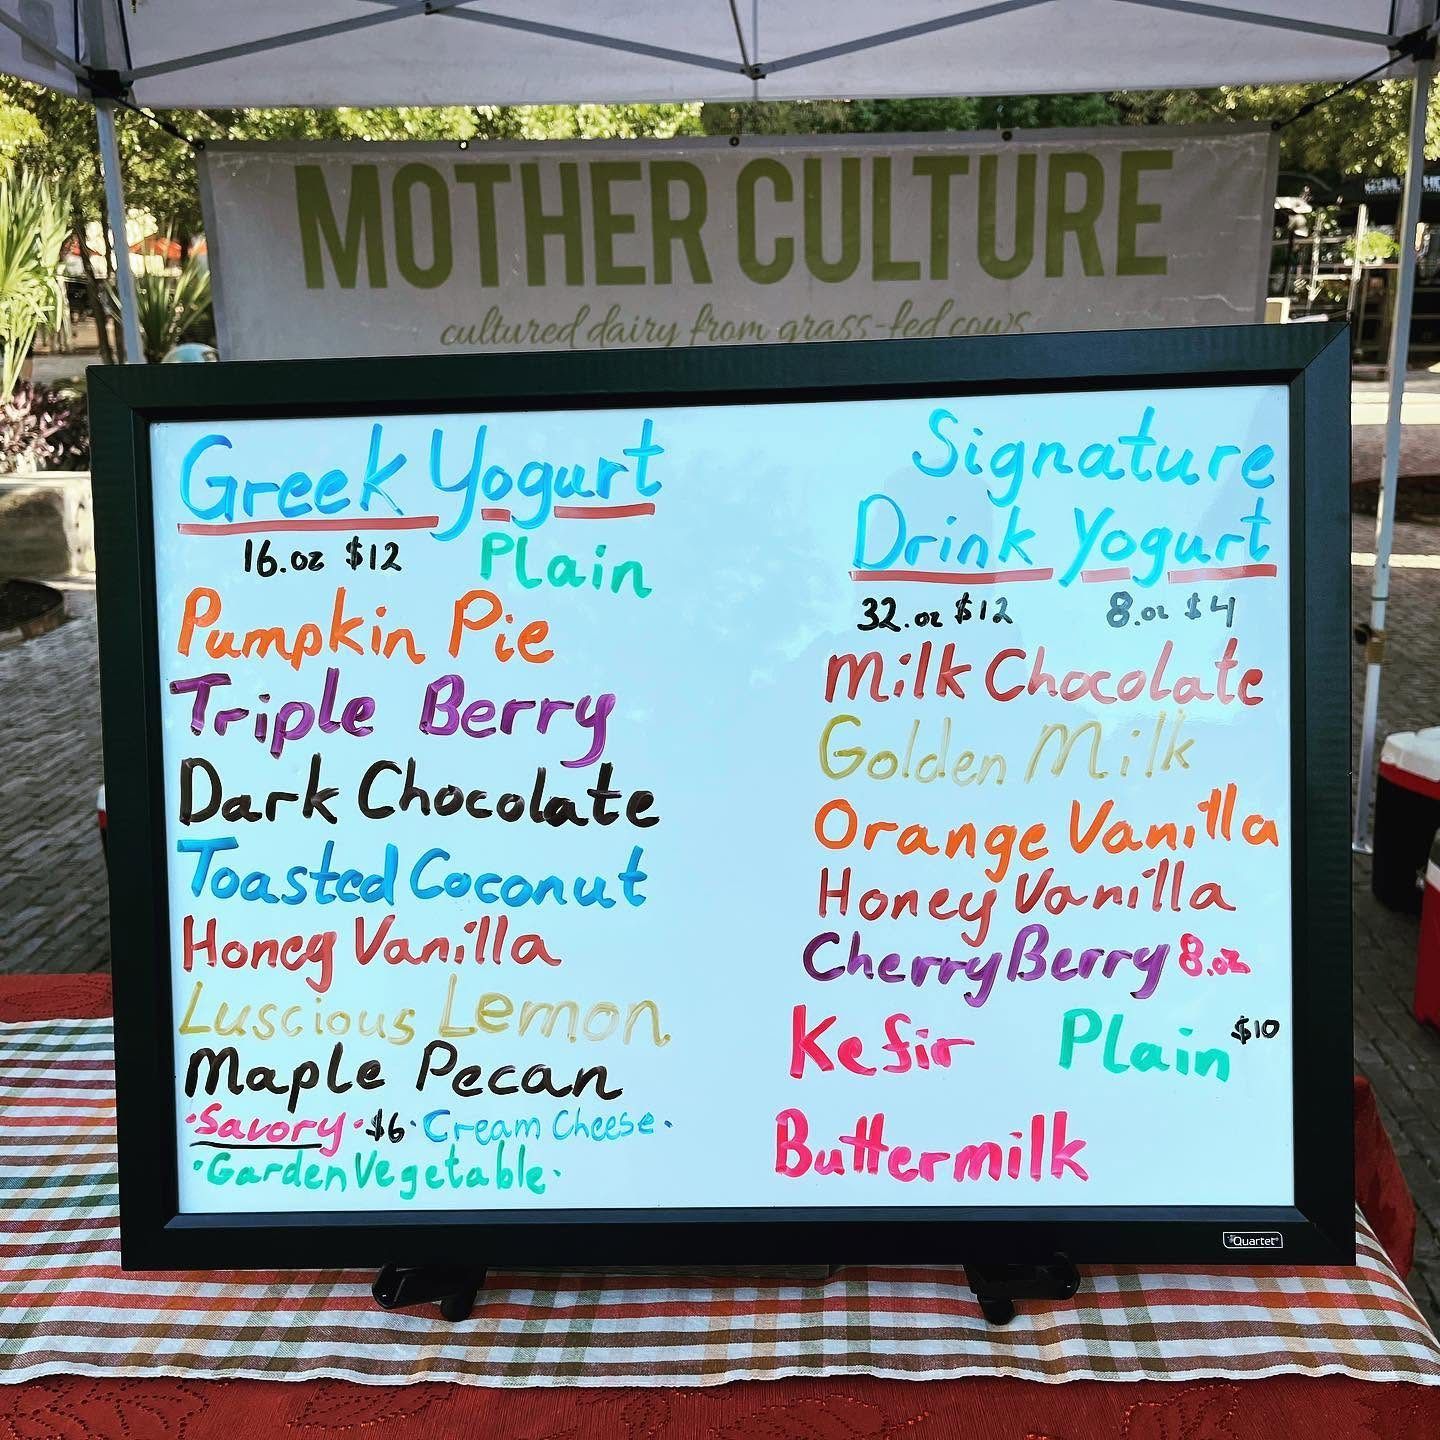 MOTHER CULTURE
cultured dairy from grass-fed cows
Greek Yogurt
16.oz $12 Plain
Pumpkin Pie
Triple Berry
Dark Chocolate
Toasted Coconut
Honey Vanilla
Luscious Lemon
Maple Pecan
•Savory• $6 • Cream Cheese •
• Garden Vegetable •
Signature
Drink Yogurt
32.oz $12 8.oz $4
Milk Chocolate
Golden Milk
Orange Vanilla
Honey Vanilla
CherryBerry 8.oz
Kefir Plain $10
Buttermilk
Quartet